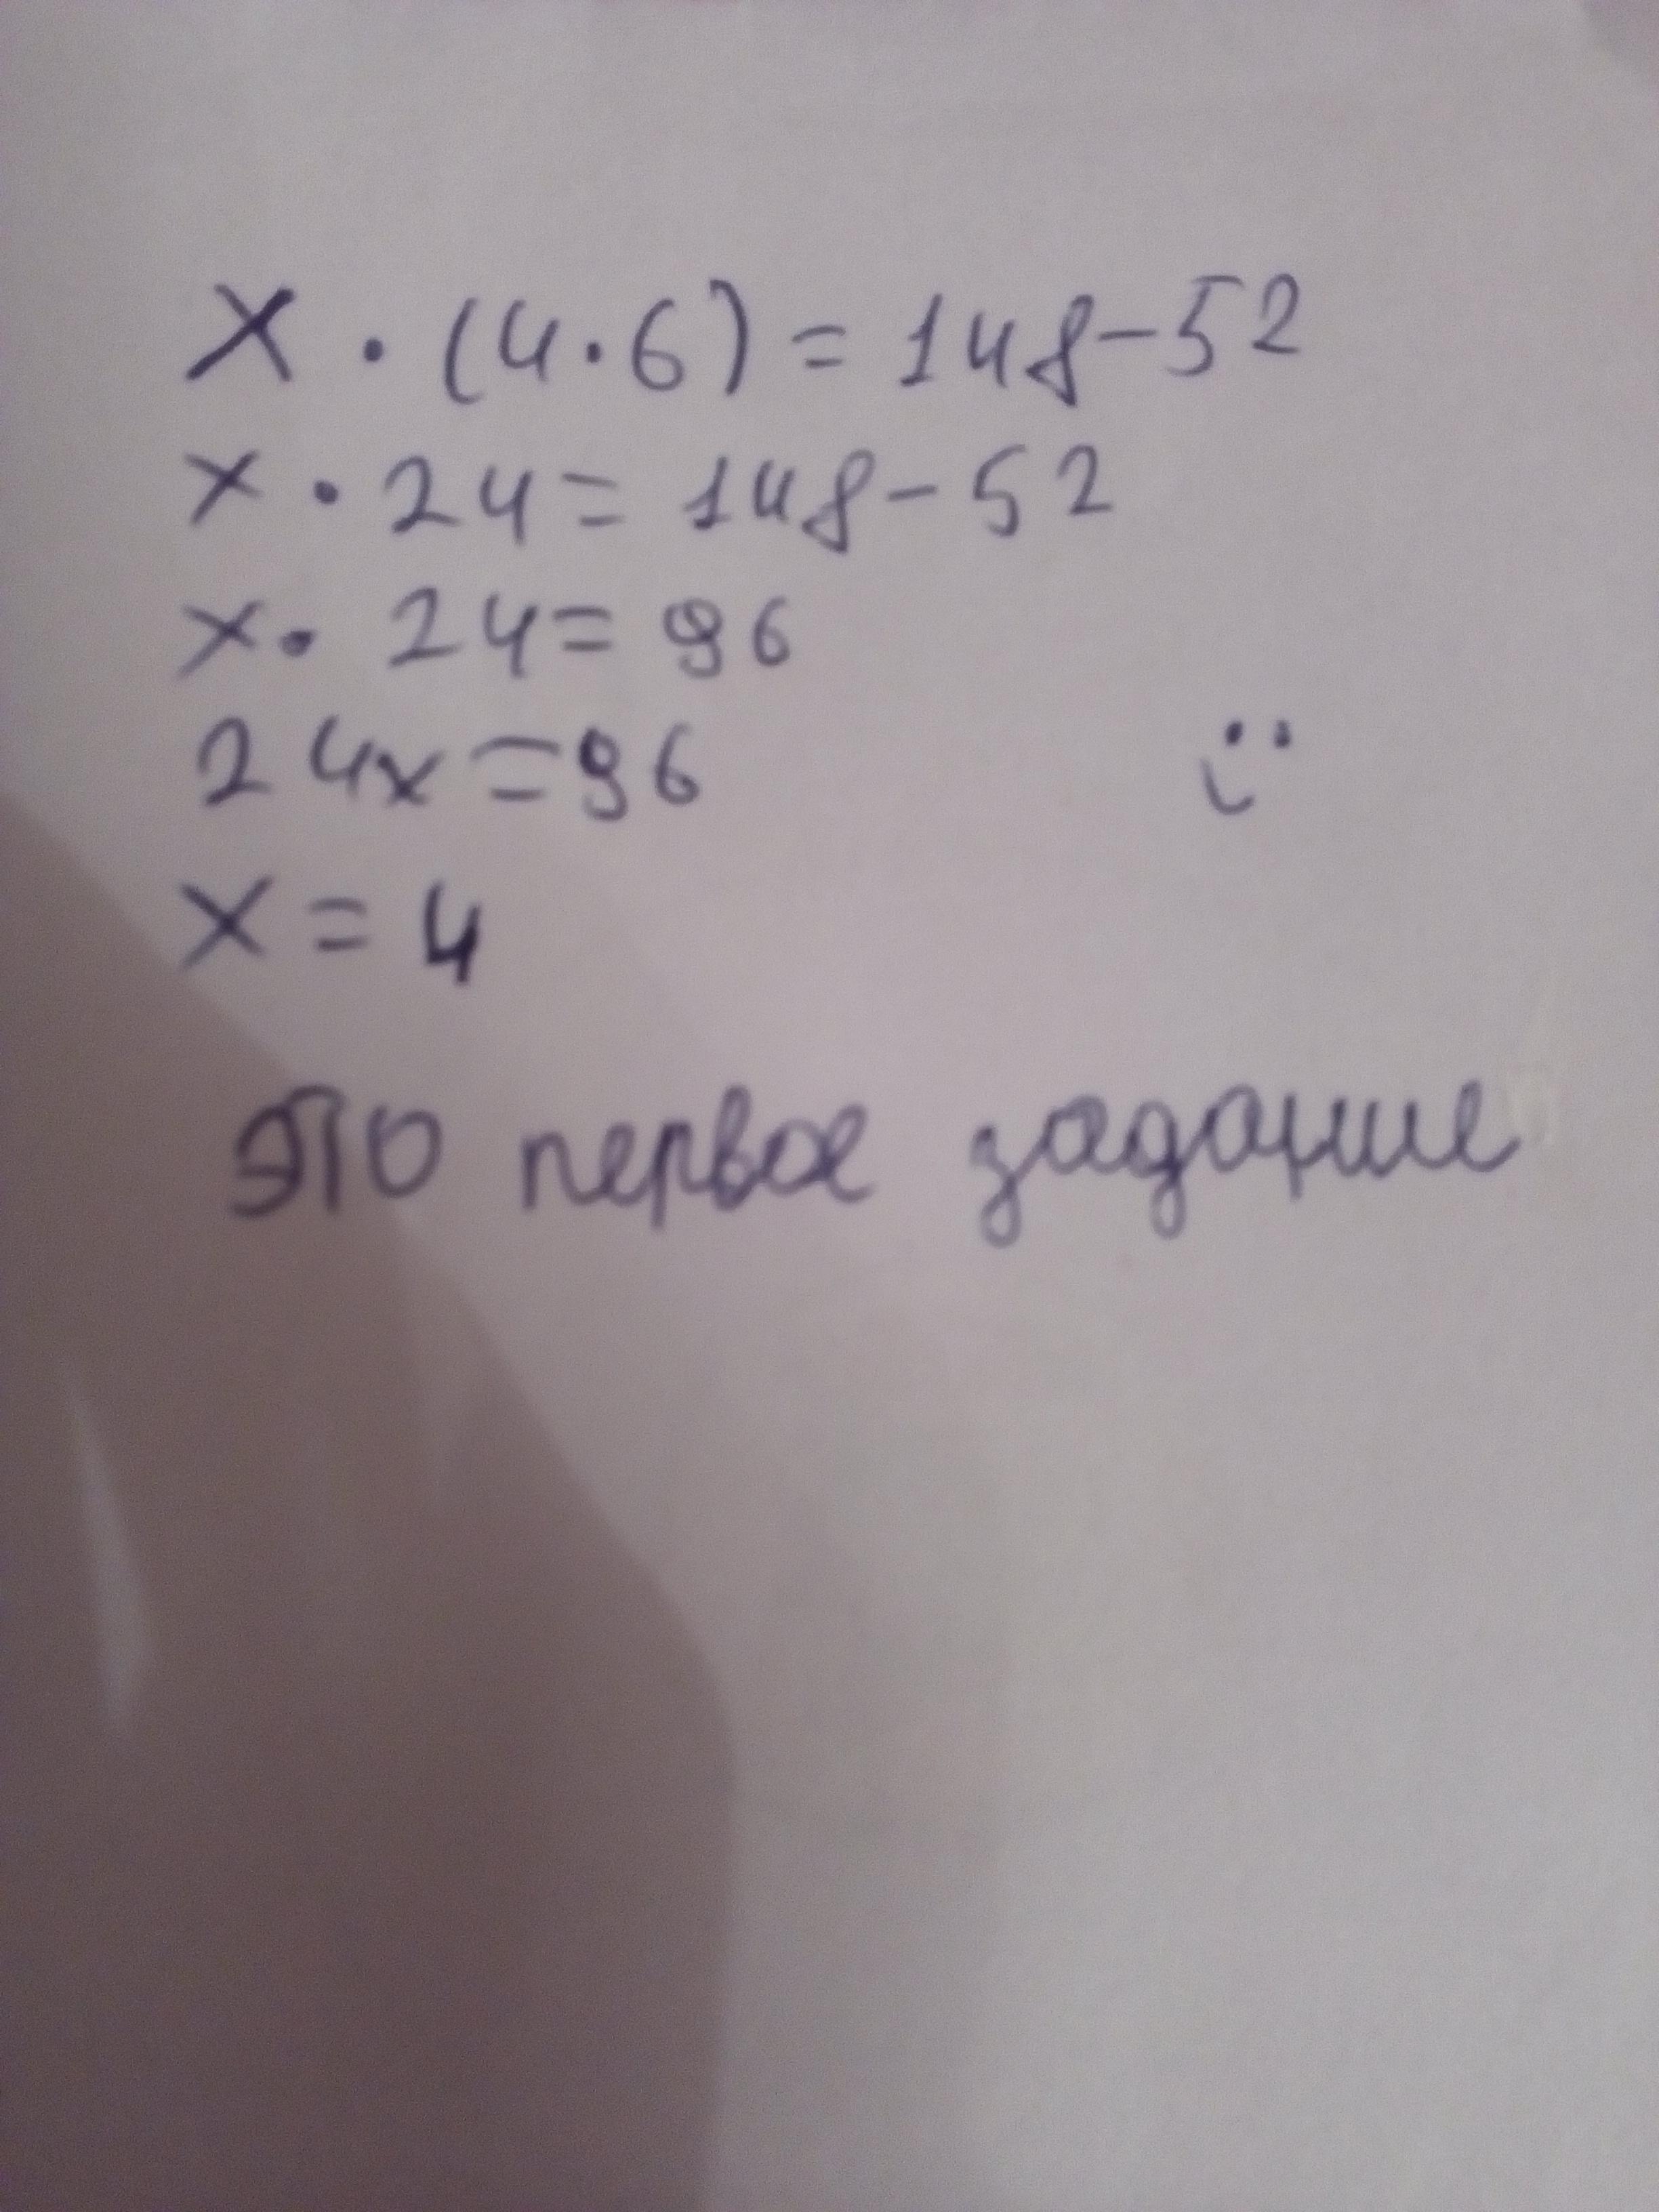 x · (4 · 6) = 148 - 52
x · 24 = 148 - 52
x · 24 = 96
24x = 96
x = 4
это первое задание